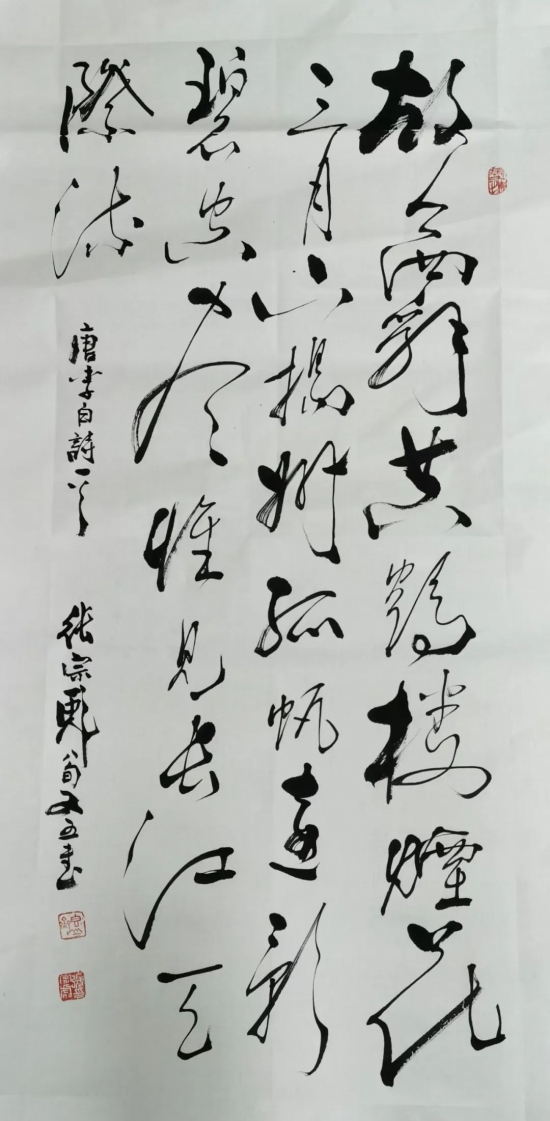 故人西辭黃鶴樓煙花
三月下揚州孤帆遠影
碧空盡惟見長江天
際流
唐李白詩一首
張宗 八旬又五書